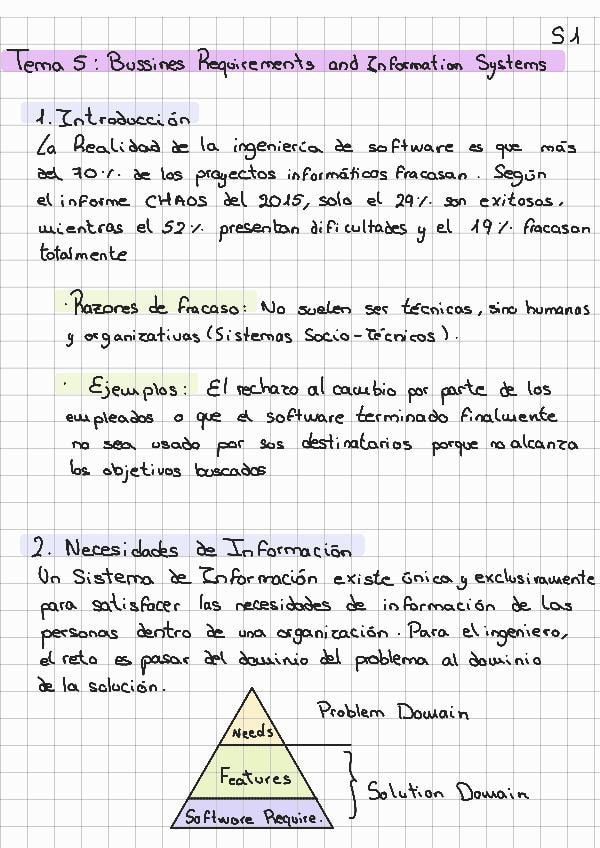 S1
Tema 5: Bussines Requirements and Information Systems
1. Introducción
La Realidad de la ingeniería de software es que más
del 70% de los proyectos informáticos fracasan. Según
el informe CHAOS del 2015, solo el 29% son exitosos,
mientras el 52% presentan dificultades y el 19% fracasan
totalmente
· Razones de fracaso: No suelen ser técnicas, sino humanas
y organizativas (Sistemas Socio-Técnicos).
· Ejemplos: El rechazo al cambio por parte de los
empleados o que el software terminado finalmente
no sea usado por sus destinatarios porque no alcanza
los objetivos buscados
2. Necesidades de Información
Un Sistema de Información existe única y exclusivamente
para satisfacer las necesidades de información de las
personas dentro de una organización. Para el ingeniero,
el reto es pasar del dominio del problema al dominio
de la solución.
Problem Domain
Needs
Features
Solution Domain
Software Require.